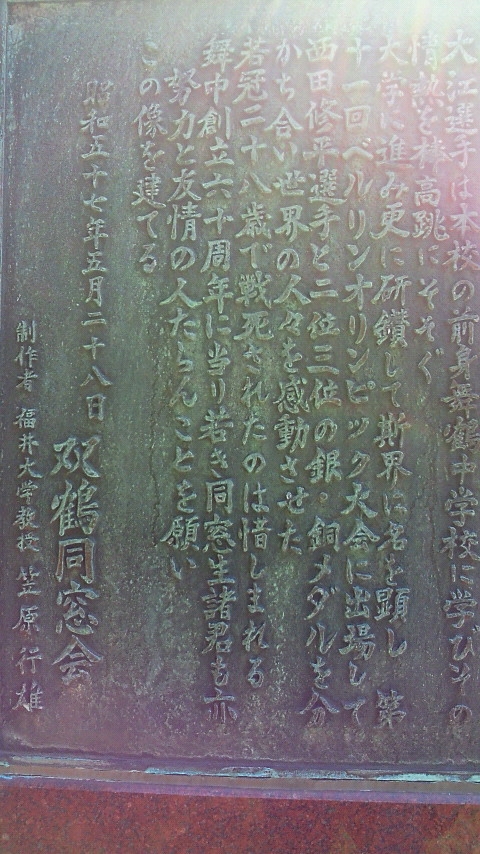 大江選手は本校の前身舞鶴中学校に学びその
情熱を棒高跳にそそぐ
大学に進み更に研鑽して斯界に名を顕し 第
十一回ベルリンオリンピック大会に出場して
西田修平選手と二位三位の銀・銅メダルを分
かち合い世界の人々を感動させた
若冠二十八歳で戦死されたのは惜しまれる
舞中創立六十周年に当り若き同窓生諸君も亦
努力と友情の人たらんことを願い
この像を建てる
昭和五十七年五月二十八日
双鶴同窓会
制作者 福井大学教授 笠原行雄